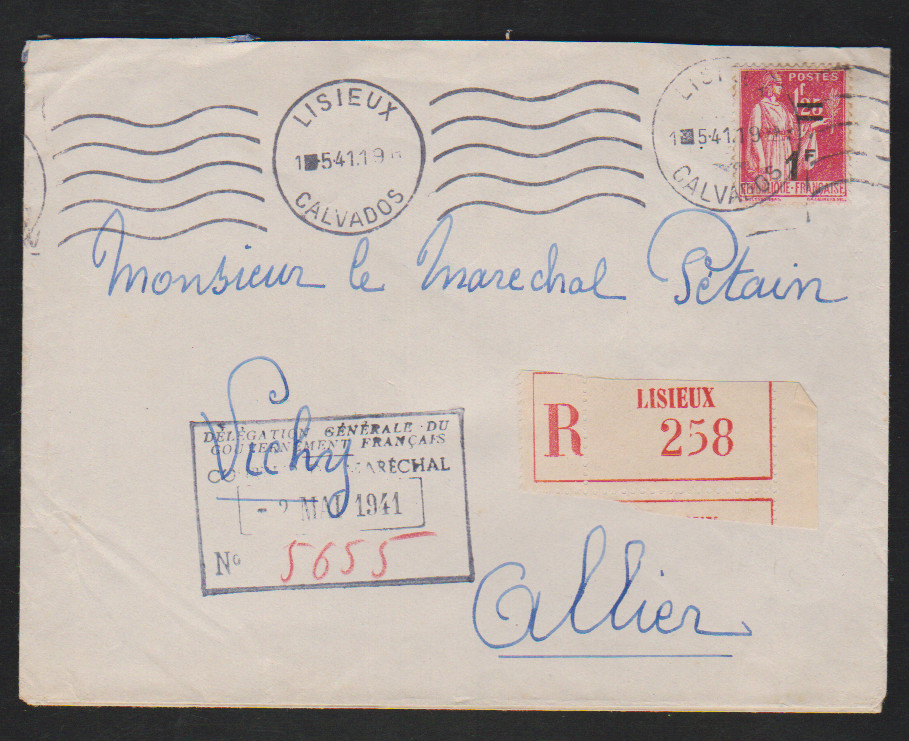 LISIEUX
5·41.19
CALVADOS
LISIEUX
5·41.19
CALVADOS
POSTES
1F 25
1F
RÉPUBLIQUE·FRANÇAISE
Monsieur le Marechal Pétain
Vichy
R LISIEUX
258
DÉLÉGATION GÉNÉRALE DU
GOUVERNEMENT FRANÇAIS
MARÉCHAL
- 2 MAI 1941
No 5655
Allier